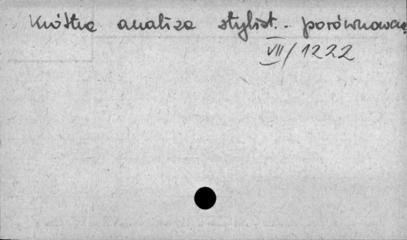 Krótka analiza stylist. porównawcza
VII/1222